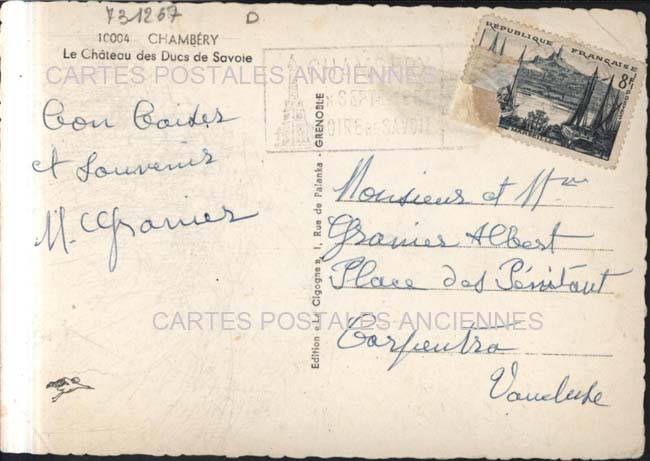 731267 D
10004 CHAMBÉRY
Le Château des Ducs de Savoie
CARTES POSTALES ANCIENNES
CHAMBERY
SEPTE
FOIRE DE SAVOIE
REPUBLIQUE FRANÇAISE
8F
MARSEILLE
Bon Baiser
et Souvenir
M. Granier
Edition « La Cigogne », 1, Rue de Palanka - GRENOBLE
Monsieur et Mme
Granier Albert
Place des Pénitant
CARTES POSTALES ANCIENNES
Carpentra
Vaucluse